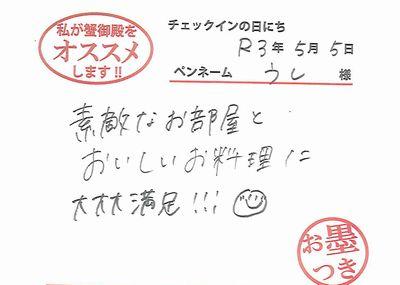 私が蟹御殿を
オススメ
します!!
チェックインの日にち
R3年5月5日
ペンネーム うし 様
素敵なお部屋と
おいしいお料理に
大大大満足!!!
お墨
つき